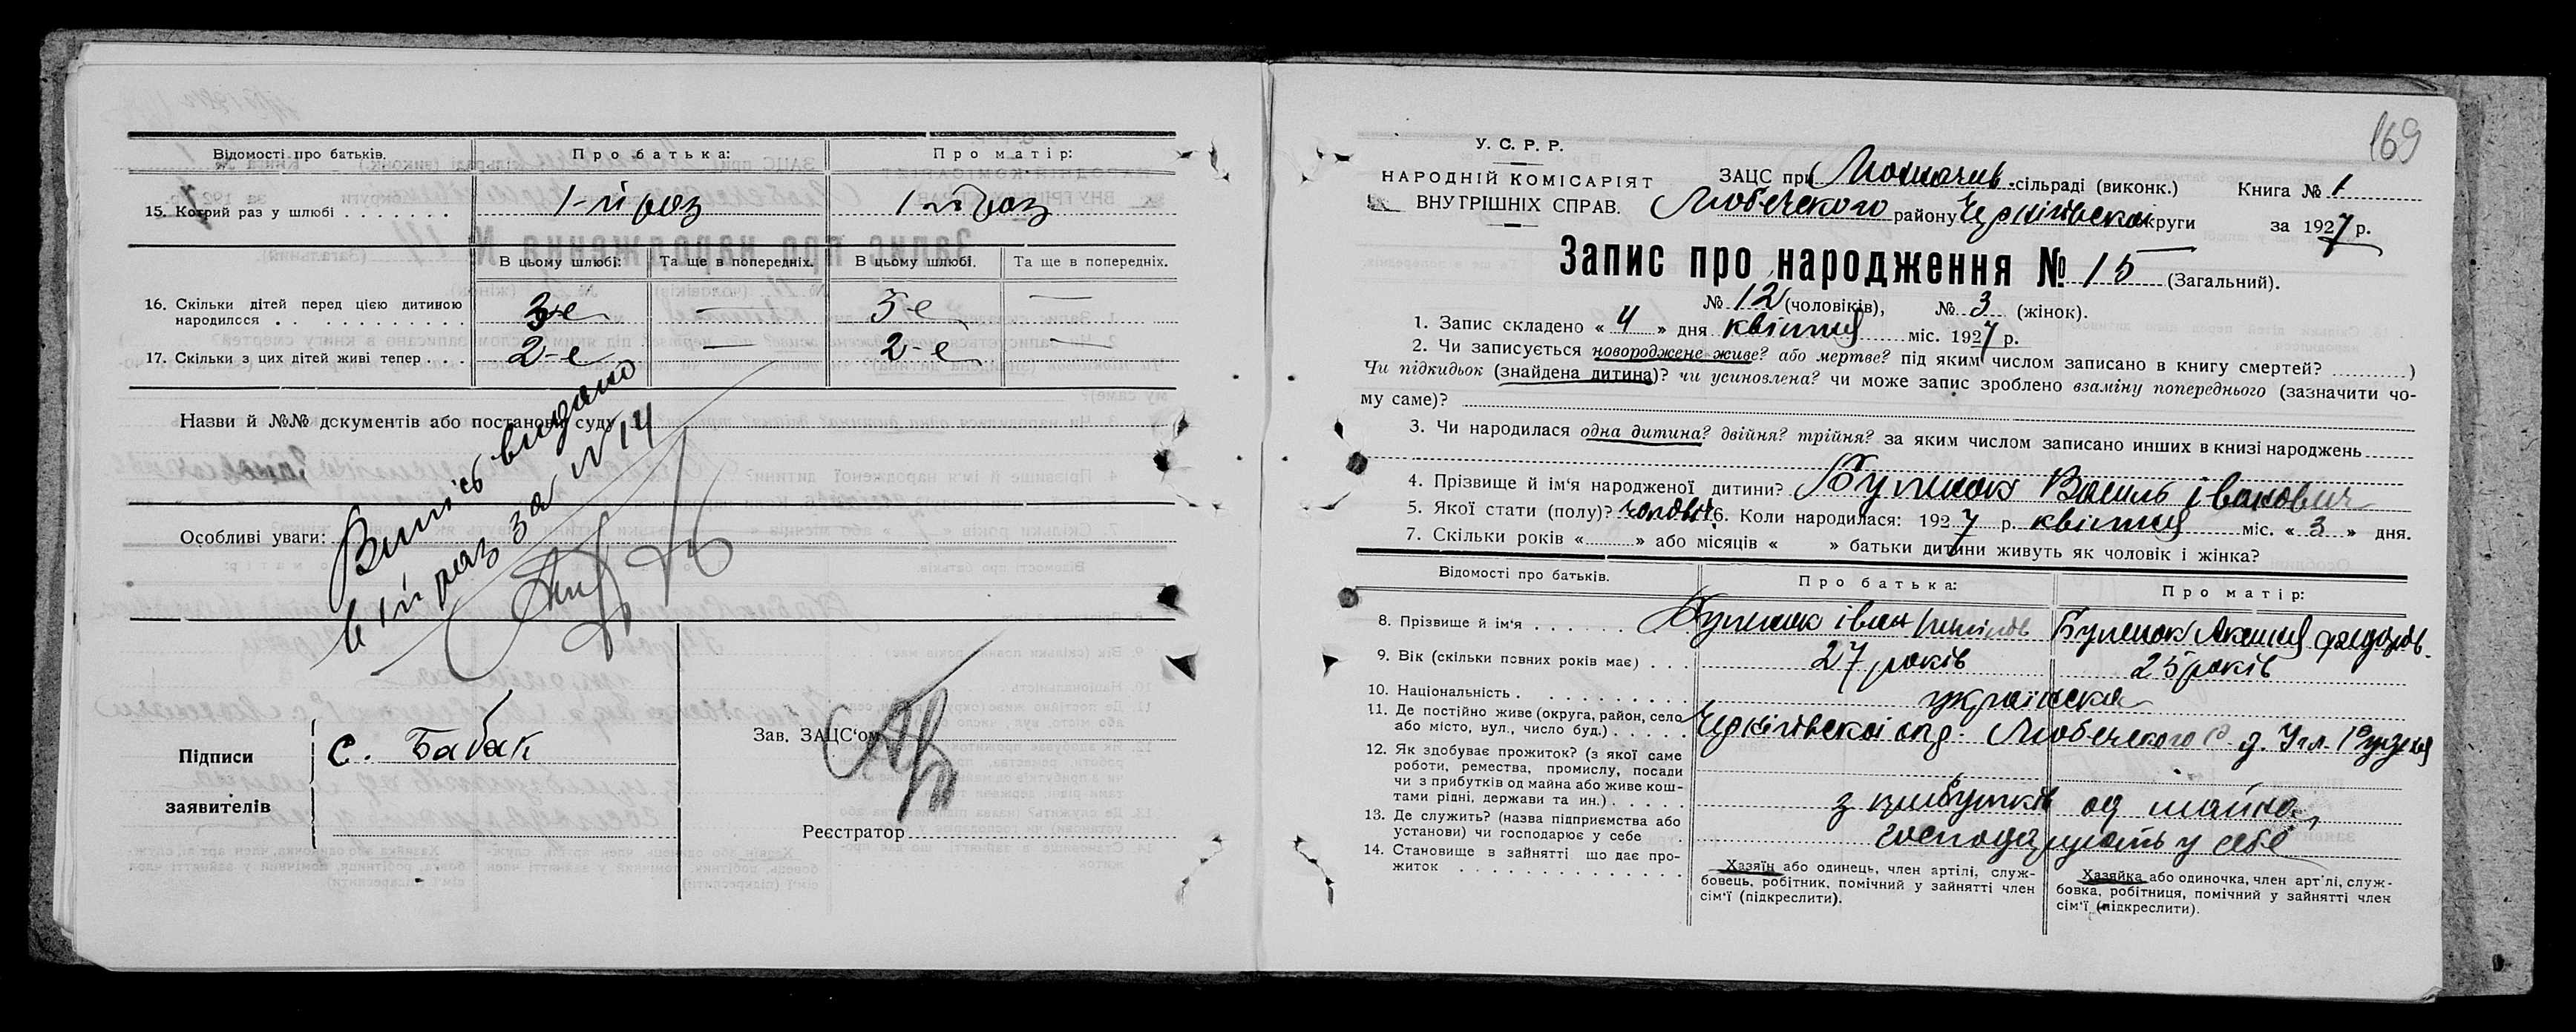 Відомості про батьків. Про батька: Про матір:
15. Котрий раз у шлюбі 1-й раз 1-й раз
В цьому шлюбі: Та ще в попередніх. В цьому шлюбі. Та ще в попередніх.
16. Скільки дітей перед цією дитиною
народилося 3-є — 3-є —
17. Скільки з цих дітей живі тепер 2-є — 2-є —
Назви й №№ документів або постанови суду
Особливі уваги:
Випись видано
в 1й раз за № 14
Підписи
заявителів
С. Бабак
Зав. ЗАЦС'ом
Реєстратор
169
У. С. Р. Р.
НАРОДНІЙ КОМІСАРІЯТ
ВНУТРІШНІХ СПРАВ.
ЗАЦС при сільраді (виконк.) Книга № 1
Любечского району Чернігівскої округи за 1927 р.
Запис про народження № 15 (Загальний).
№ 12 (чоловіків), № 3 (жінок).
1. Запис складено « 4 » дня квітня міс. 1927 р.
2. Чи записується новороджене живе? або мертве? під яким числом записано в книгу смертей? )
Чи підкидьок (знайдена дитина)? чи усиновлена? чи може запис зроблено взаміну попереднього (зазначити чо-
му саме)?
3. Чи народилася одна дитина? двійня? трійня? за яким числом записано инших в книзі народжень
4. Прізвище й ім'я народженої дитини? Василь Іванович
5. Якої стати (полу)? чоловіч. 6. Коли народилася: 1927 р. квітня міс. « 3 » дня.
7. Скільки років « » або місяців « » батьки дитини живуть як чоловік і жінка?
Відомості про батьків. Про батька: Про матір:
8. Прізвище й ім'я Іван
9. Вік (скільки повних років має) 27 років 25 років
10. Національність українска
11. Де постійно живе (округа, район, село
або місто, вул., число буд.) Чернігівскої окр. Любечского р. д. Рудня
12. Як здобуває прожиток? (з якої саме
роботи, ремества, промислу, посади
чи з прибутків од майна або живе кош-
тами рідні, держави та ин.) з прибутків од майна
13. Де служить? (назва підприємства або
установи) чи господарює у себе господарують у себе
14. Становище в зайнятті що дає про-
житок
Хазяїн або одинець, член артілі, служ-
бовець, робітник, помічний у зайнятті член
сім'ї (підкреслити).
Хазяйка або одиночка, член арт'лі, служ-
бовка, робітниця, помічний у зайнятті член
сім'ї (підкреслити).